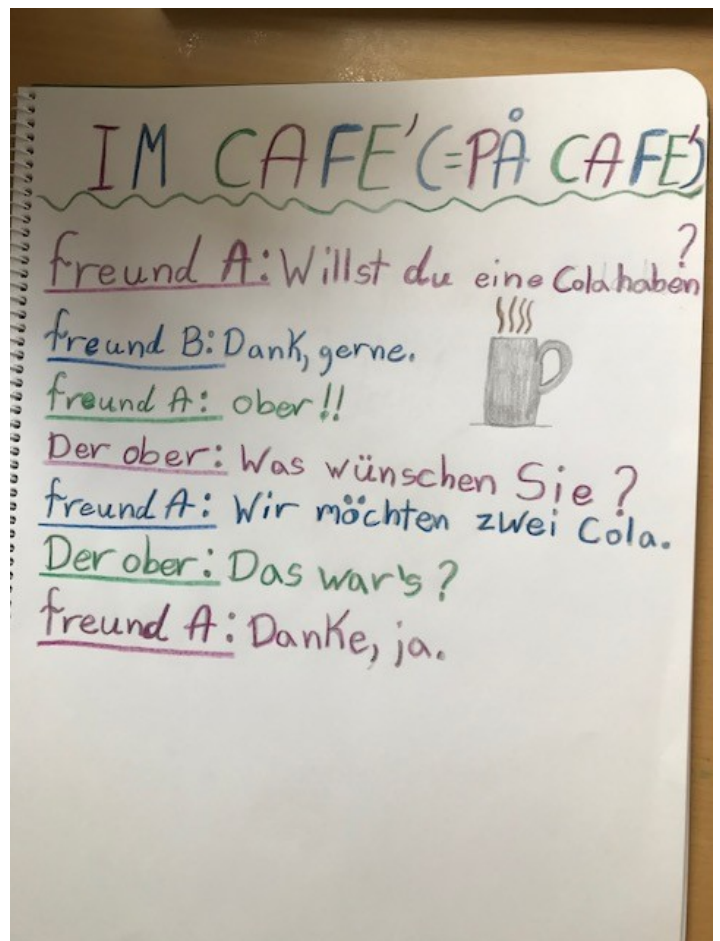 IM CAFE' (=PÅ CAFE')
freund A: Willst du eine Cola haben?
freund B: Dank, gerne.
freund A: ober!!
Der ober: Was wünschen Sie?
freund A: Wir möchten zwei Cola.
Der ober: Das war's?
freund A: Danke, ja.